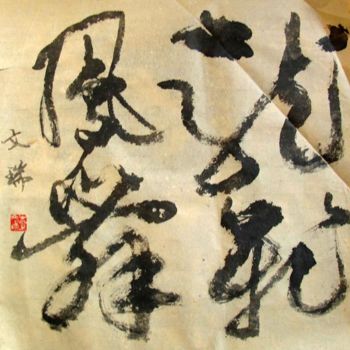 龍飛
鳳舞
文瑞